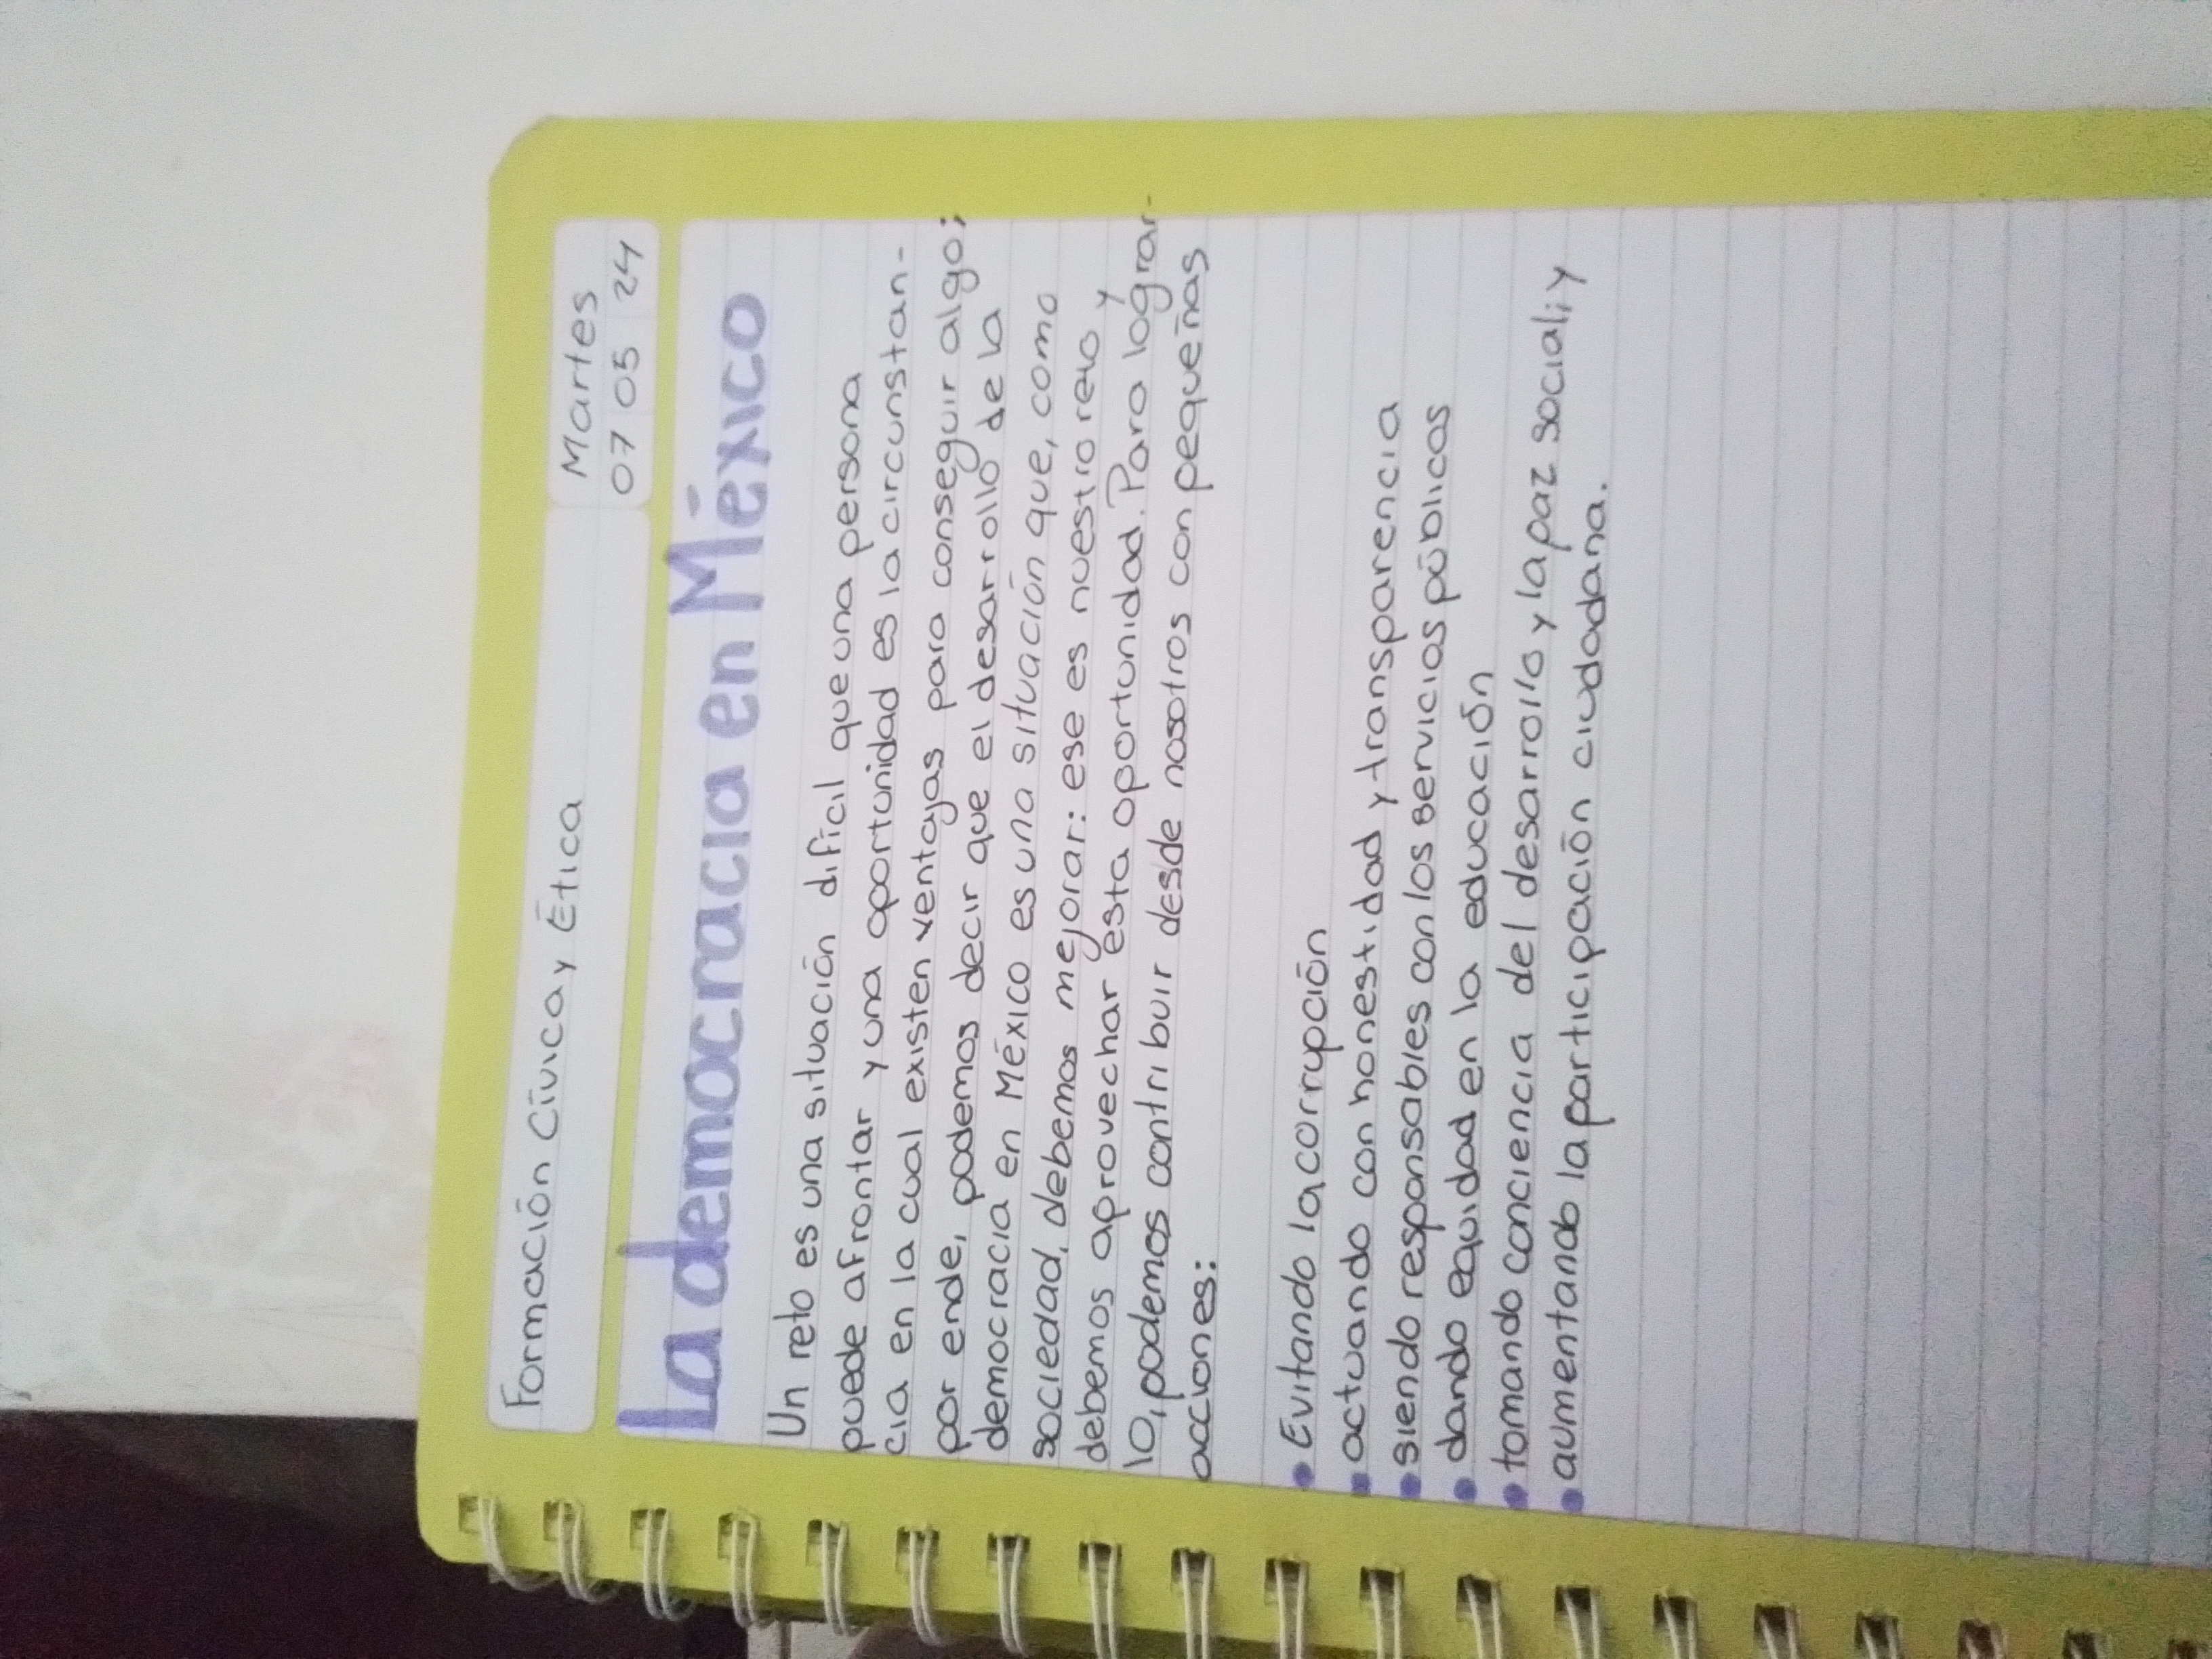 Formación Cívica y Ética
Martes
07 05 24
La democracia en México
Un reto es una situación difícil que una persona
puede afrontar y una oportunidad es la circunstan-
cia en la cual existen ventajas para conseguir algo;
por ende, podemos decir que el desarrollo de la
democracia en México es una situación que, como
sociedad, debemos mejorar: ese es nuestro reto y
debemos aprovechar esta oportunidad. Para lograr-
lo, podemos contribuir desde nosotros con pequeñas
acciones:
• Evitando la corrupción
• actuando con honestidad y transparencia
• siendo responsables con los servicios públicos
• dando equidad en la educación
• tomando conciencia del desarrollo y la paz social; y
• aumentando la participación ciudadana.